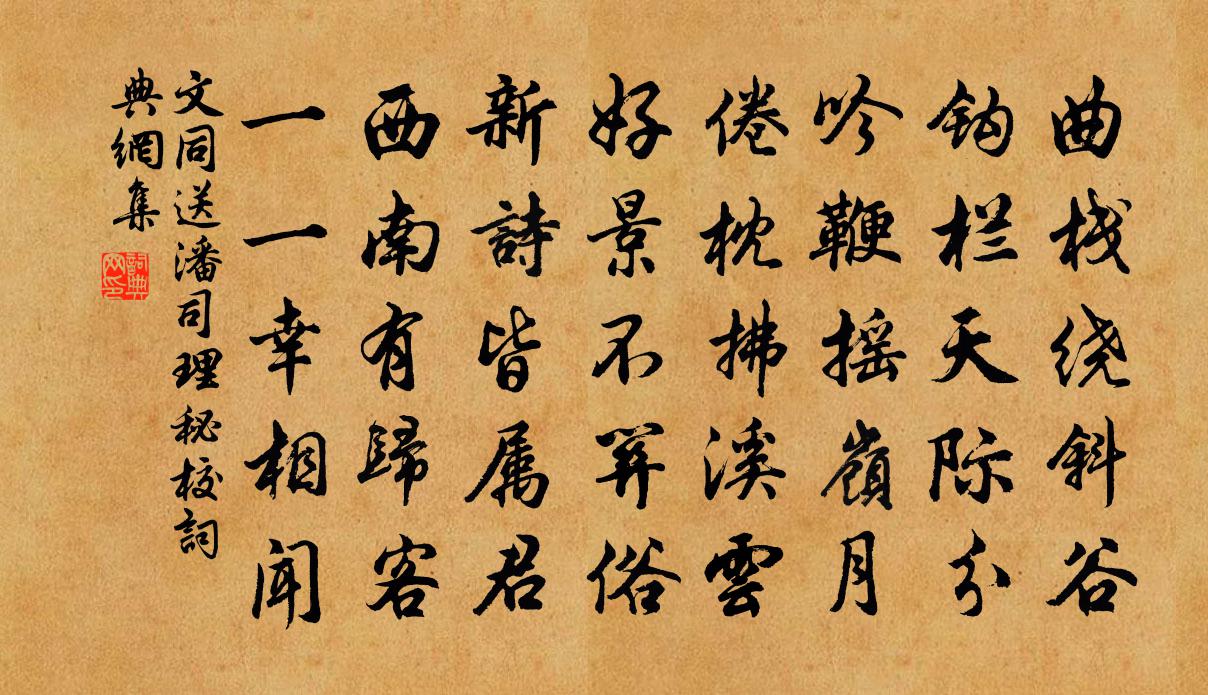 曲栈绕斜谷
钩栏天际分
吟鞭摇嶺月
倦枕拂溪雲
好景不关俗
新詩皆属君
西南有歸客
一一幸相聞
文同送潘司理秘校詞
典網集
詞典网印